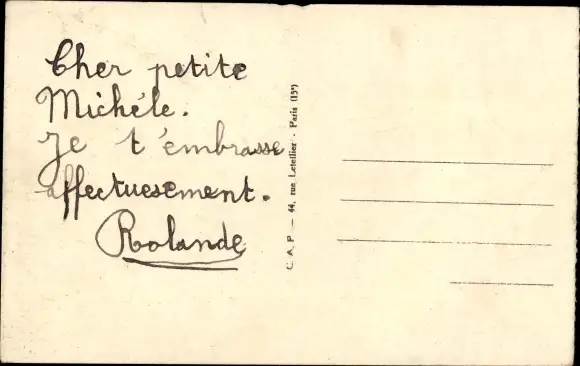 Cher petite
Michéle.
Je t'embrasse
affectuesement.
Rolande
C. A. P. — 44, rue Letellier - Paris (15ᵉ)